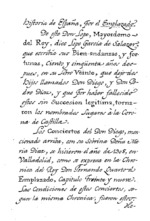 Historia de España, por el Emplazado.
De este Don Lope, Mayordomo
del Rey, dice Lope Garcia de Salazar,
que escribio sus Bien andanzas, y for-
tunas, ciento y cinquenta años des-
pues, en su Libro Veinte, que dexó dos
Hijos llamados Don Diego, y Don
Diaz, y que por haber fallecido
estos sin succesion legitima, torna-
ron los nombrados Lugares à la Coro-
na de Castilla.
Los Conciertos del Don Diego, men-
cionado arriba, con su Sobrina Doña
ria Diaz, se hicieron el año de
Valladolid, como se expresa en la Cro-
nica del Rey Don Fernando Quarto el
Emplazado, Capitulo Treinta y nueve.
Las Condiciones de estos Conciertos, se-
gun la misma Cronica, fueron